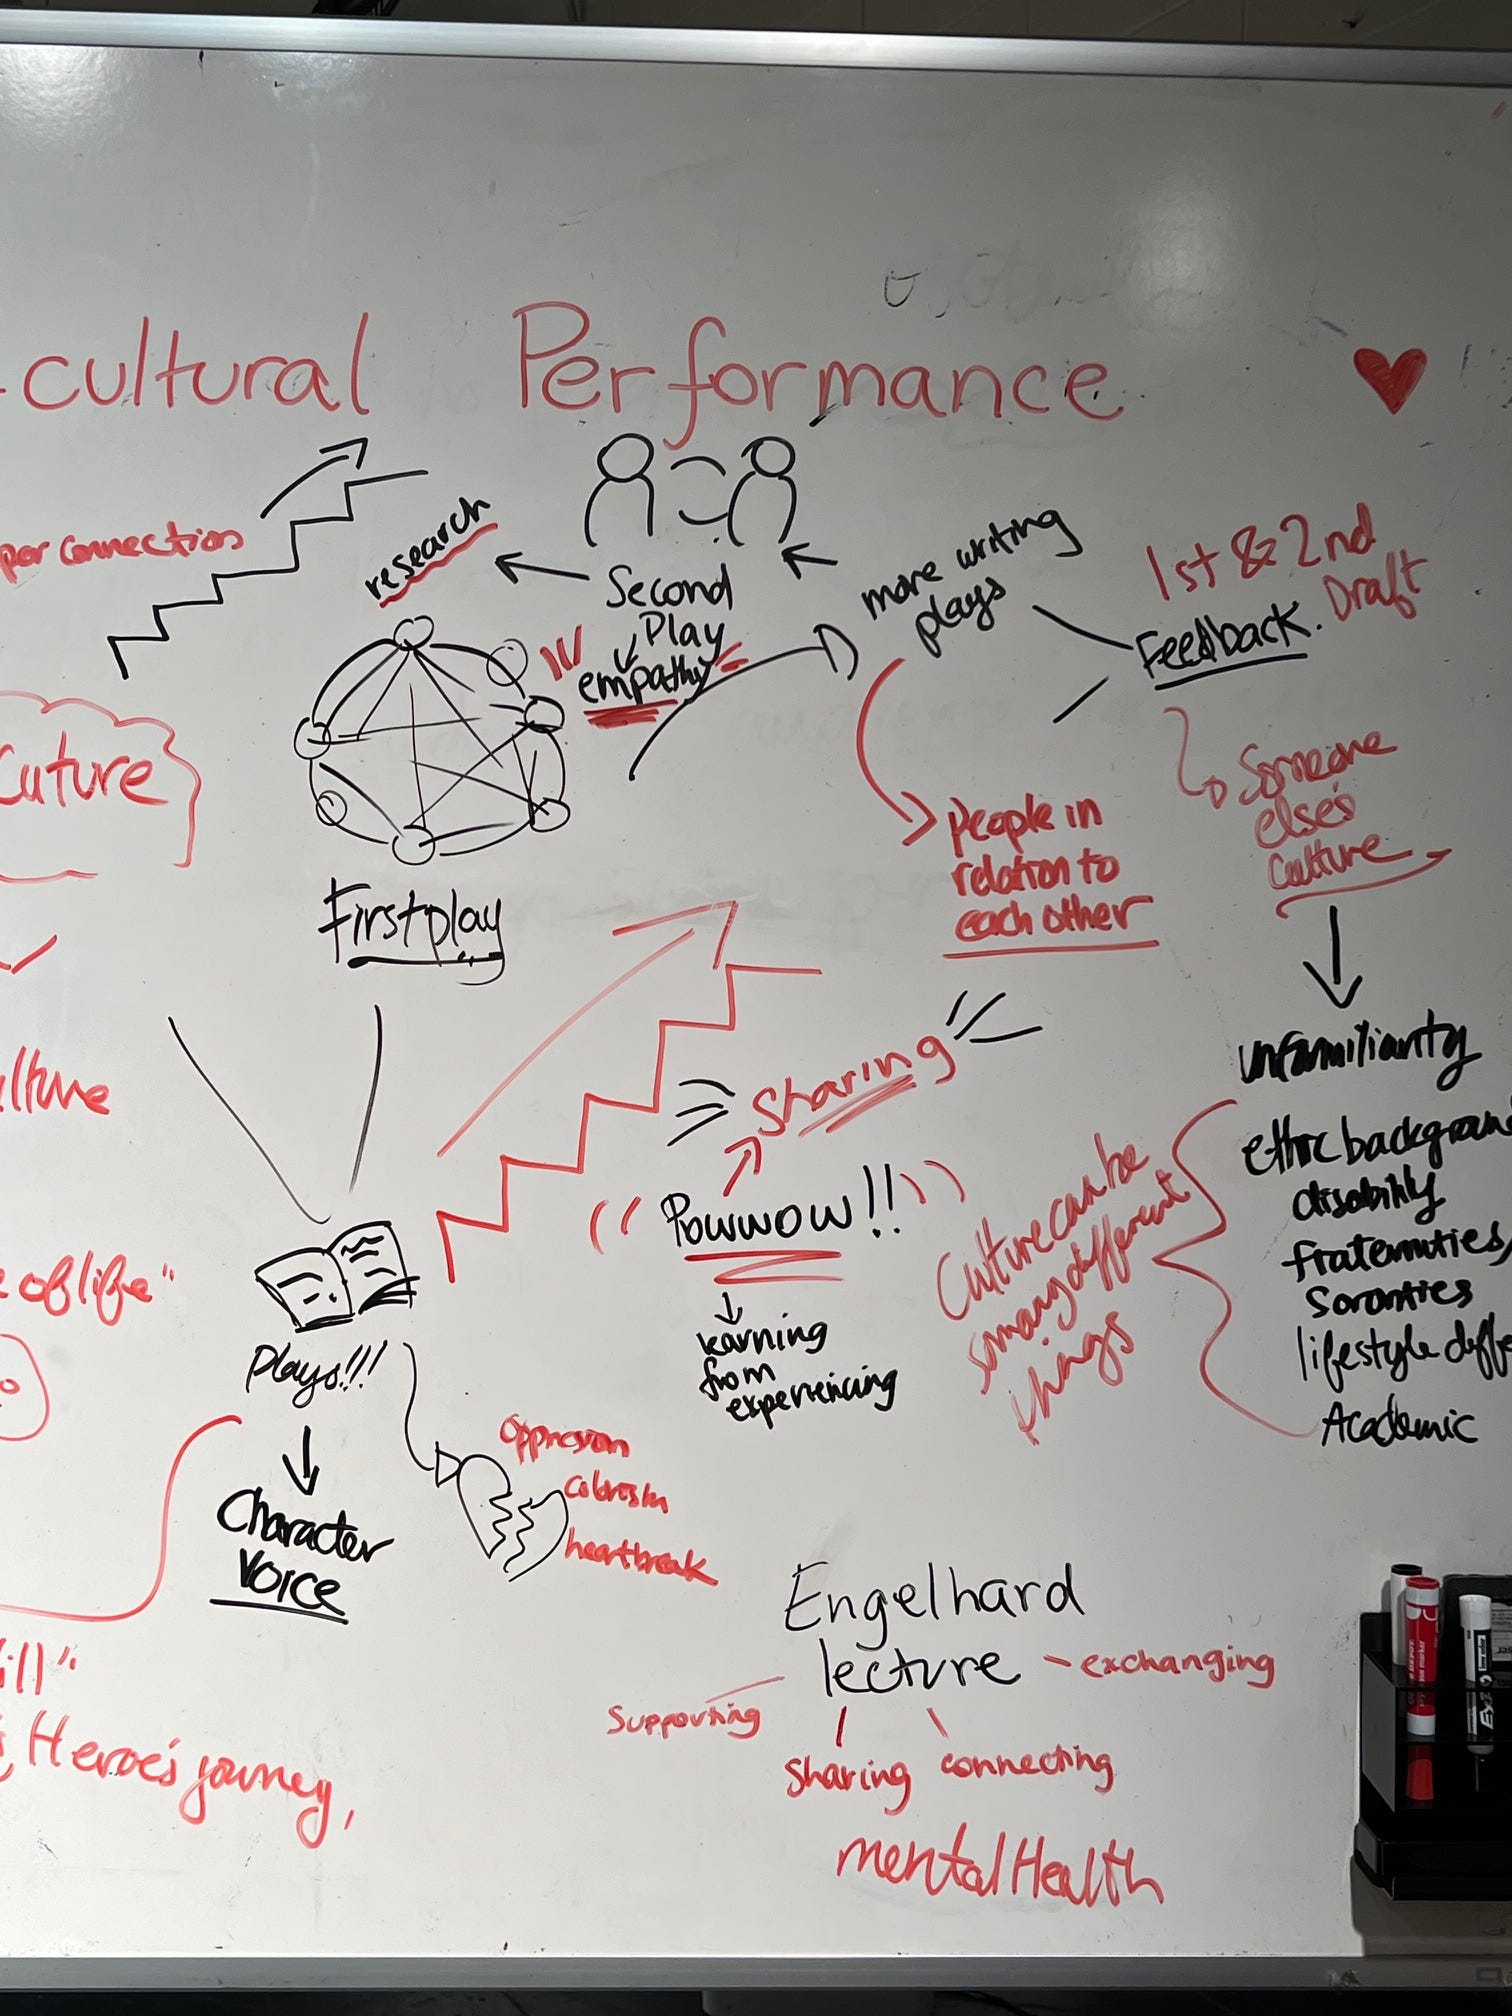 cultural Performance
per connection
research
Second
Play
empathy
more writing
plays
1st & 2nd
Draft
Feedback.
Someone
else's
Culture
People in
relation to
each other
Cuture
First play
unfamilianty
ethic background
disability
fraternities/
Sororities
lifestyle diffe
Academic
Culture can be
so many different
things
Sharing
Powwow!!
learning
from
experiencing
lture
e of life"
Plays!!!
Character
Voice
Oppresion
colorism
heartbreak
ill"
Heroe's journey,
Engelhard
lecture - exchanging
Supporting
Sharing connecting
mental Health